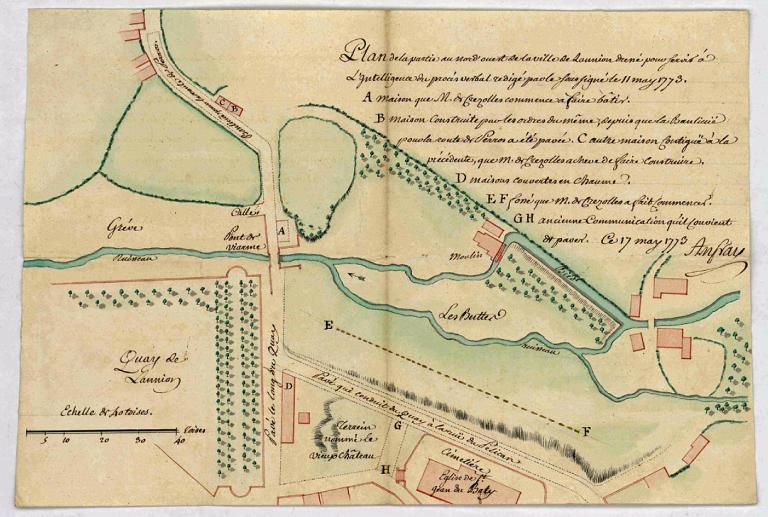 Plan de la partie au nord ouest de la ville de Lannion dressé pour servir à
L'Intelligence du procès verbal redigé par le soussigné le 11 may 1773.
A maison que M. de Crezolles commence a faire bâtir.
B maison Construite par les ordres du même, depuis que la Banlieüe
pour la route de Perros a été pavée. C autre maison Contigüe à la
précédente, que M. de Crezolles acheve de faire construire.
D maisons couvertes en Chaume.
E F que M. de Crezolles a fait Commencer.
G H ancienne Communication qu'il Convient
de paver. Ce 17 may 1773
Anfray
Banlieue pour la route de
C B
Calle
A
Grève
Pont de Viarme
Ruisseau
Moulin
Les Buttes
Ruisseau
E
Quay de
Lannion
Pavé le long du Quay
Pavé qui conduit du Quay à la rue du Pelican
D
Echelle de 40 toises.
5 10 20 30 40 Toises
Terrein
nommé le
vieux Château
G
F
H
Cimetière
Eglise de St
Jean du Baly